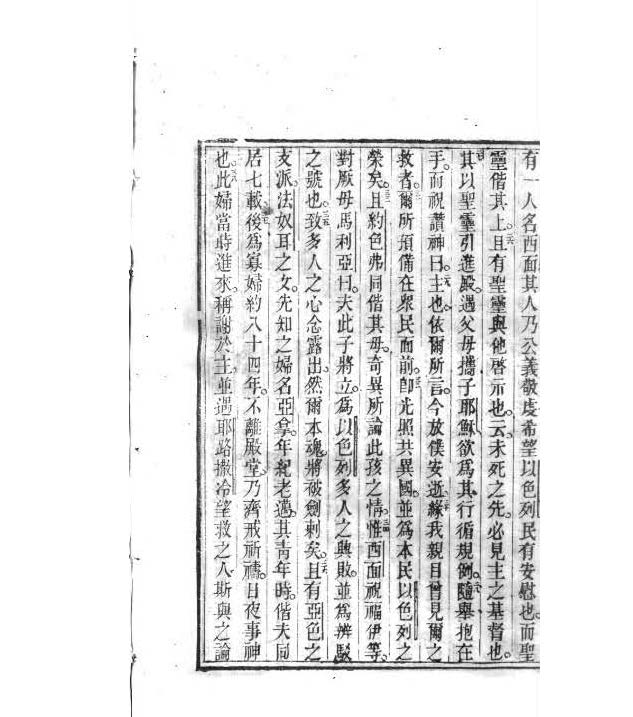 有一人名西面其人乃公義敬虔希望以色列民有安慰也。而聖
靈偕其上。且有聖靈與他啓示也。云。未死之先。必見主之基督也。
其以聖靈引進殿。遇父母攜子耶穌欲爲其行循規例。隨舉抱在
手。而祝讚神曰。主也。依爾所言。今放僕安逝。緣我親目曾見爾之
救者。爾所預備在衆民面前。即光照共異國。並爲本民以色列之
榮矣。且約色弗同偕其母。奇異所論此孩之情。惟西面祝福伊等。
對厥母馬利亞曰。夫此子將立。爲以色列多人之興敗。並爲辨駁
之號也。致多人之心念露出。然爾本魂。將被劍刺矣。且有亞色之
支派法奴耳之女。先知之婦名亞拿。年紀老邁。其青年時。偕夫同
居七載後爲寡婦約八十四年。不離殿堂。乃齋戒祈禱。日夜事神
也。此婦當時進來。稱謝於主。並遇耶路撒冷望救之人斯與之論